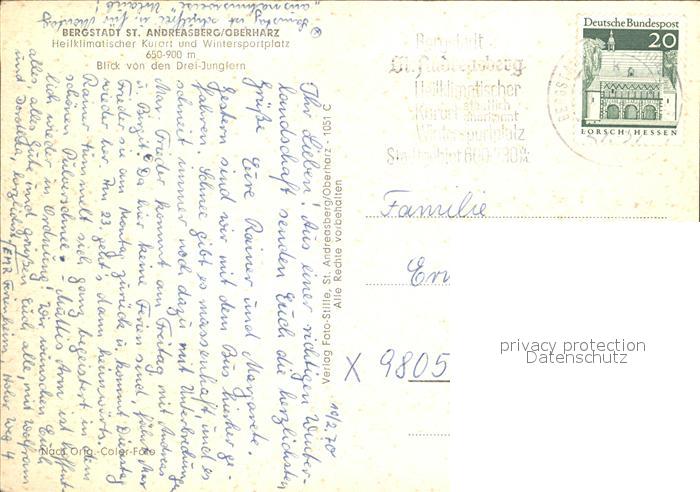 Samstag ist
"ausnahmsweise" Urlaub!
BERGSTADT ST. ANDREASBERG/OBERHARZ
Heilklimatischer Kurort und Wintersportplatz
650-900 m
Blick von den Drei-Jungfern
Bergstadt
St. Andreasberg
Heilklimatischer
Kurort
Wintersportplatz
Deutsche Bundespost
20
LORSCH/HESSEN
Ihr Lieben! Aus einer richtigen Winter-
landschaft senden Euch die herzlichsten
Grüße Eure Rainer und Margarete.
Gestern sind wir mit dem Bus hierher ge-
fahren. Schnee gibt es massenhaft, und es
schneit immer noch dazu mit Unterbrechung
kommt am Freitag mit Andreas
u. Birgit. Da hier keine Ferien sind, fährt
Frieder sie am Montag zurück u. kommt Dienstag
wieder her. Am 23. geht's dann heimwärts.
Rainer tummelt sich ganz begeistert in dem
schönen Pulverschnee. - Muttis Arm ist hoffent-
lich wieder in Ordnung! Wir wünschen Euch
alles, alles Gute und grüßen Euch alle, mit Wolfram
und Dorothea, herzlichst
Verlag Foto-Stille, St. Andreasberg/Oberharz - 1051 C
Alle Rechte vorbehalten
Familie
X 9805
19/2.70
Nach Orig.-Color-Foto
privacy protection
Datenschutz